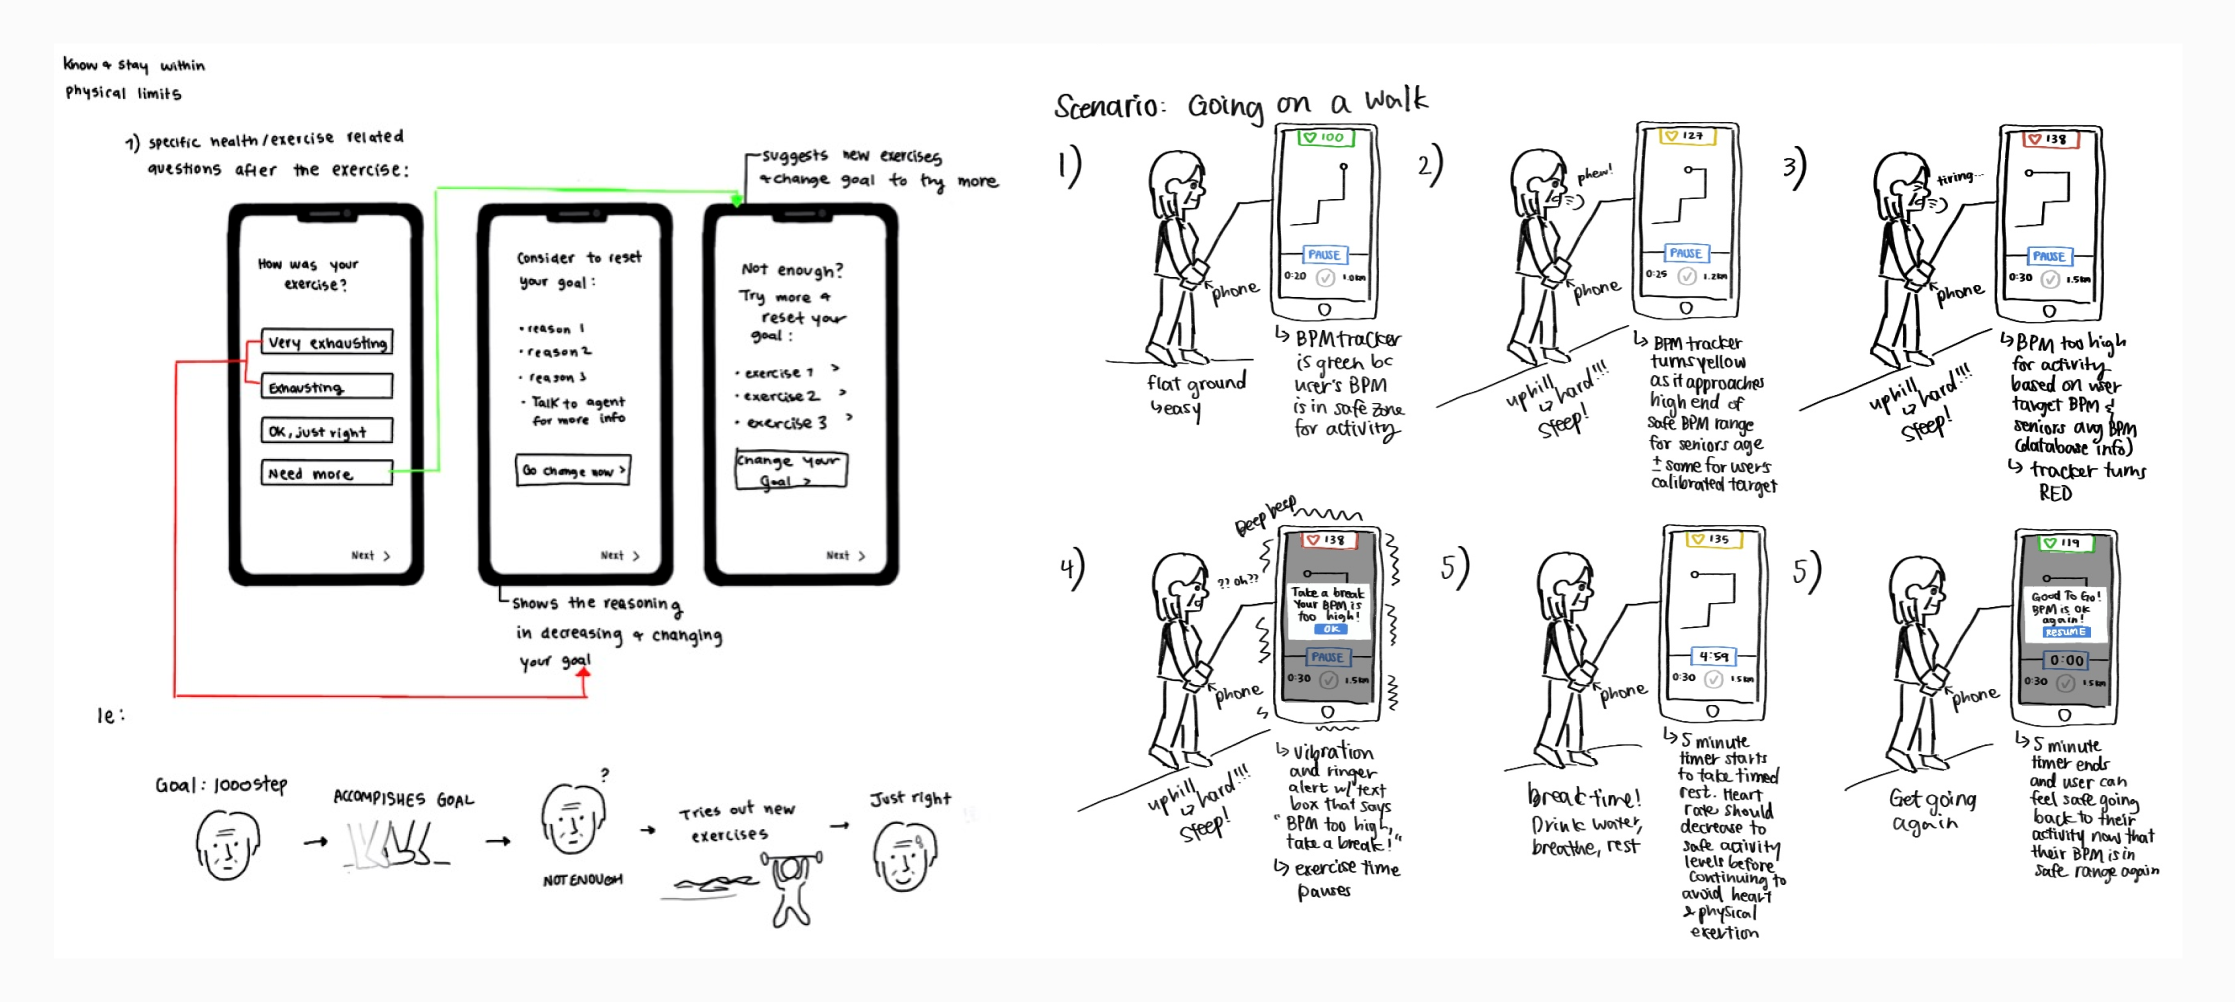 Know & stay within
physical limits
1) specific health/exercise related
questions after the exercise:
suggests new exercises
& change goal to try more
How was your
exercise?
Very exhausting
Exhausting
OK, just right
Need more
Next >
Consider to reset
your goal:
• reason 1
• reason 2
• reason 3
• Talk to agent
for more info
Go change now >
Next >
Not enough?
Try more &
reset your
goal:
• exercise 1 >
• exercise 2 >
• exercise 3 >
Change your
Goal >
Next >
shows the reasoning
in decreasing & changing
your goal
Ie:
Goal: 1000step
ACCOMPISHES GOAL
?
NOT ENOUGH
Tries out new
exercises
Just right
Scenario: Going on a walk
1)
100
PAUSE
0:20
1.0km
phone
flat ground
↳ easy
↳ BPM tracker
is green bc
user's BPM
is in safe zone
for activity
2)
phew!
127
PAUSE
0:25
1.2km
phone
uphill
↳ hard!!!
steep!
↳ BPM tracker
turns yellow
as it approaches
high end of
safe BPM range
for seniors age
± some for user's
calibrated target
3)
tiring...
138
PAUSE
0:30
1.5km
phone
uphill
↳ hard!!!
steep!
↳ BPM too high
for activity
based on user
target BPM &
seniors avg BPM
(database info)
↳ tracker turns
RED
4)
Beep beep
?? oh??
138
Take a break
Your BPM is
too high!
OK
PAUSE
0:30
1.5km
phone
uphill
↳ hard!!!
steep!
↳ vibration
and ringer
alert w/ text
box that says
"BPM too high,
take a break!"
↳ exercise time
pauses
5)
135
4:59
0:30
1.5km
phone
break time!
Drink water,
breathe, rest
↳ 5 minute
timer starts
to take timed
rest. Heart
rate should
decrease to
safe activity
levels before
continuing to
avoid heart
& physical
exertion
5)
119
Good To Go!
BPM is OK
again!
RESUME
0:00
0:30
1.5km
phone
Get going
again
↳ 5 minute
timer ends
and user can
feel safe going
back to their
activity now that
their BPM is in
safe range again